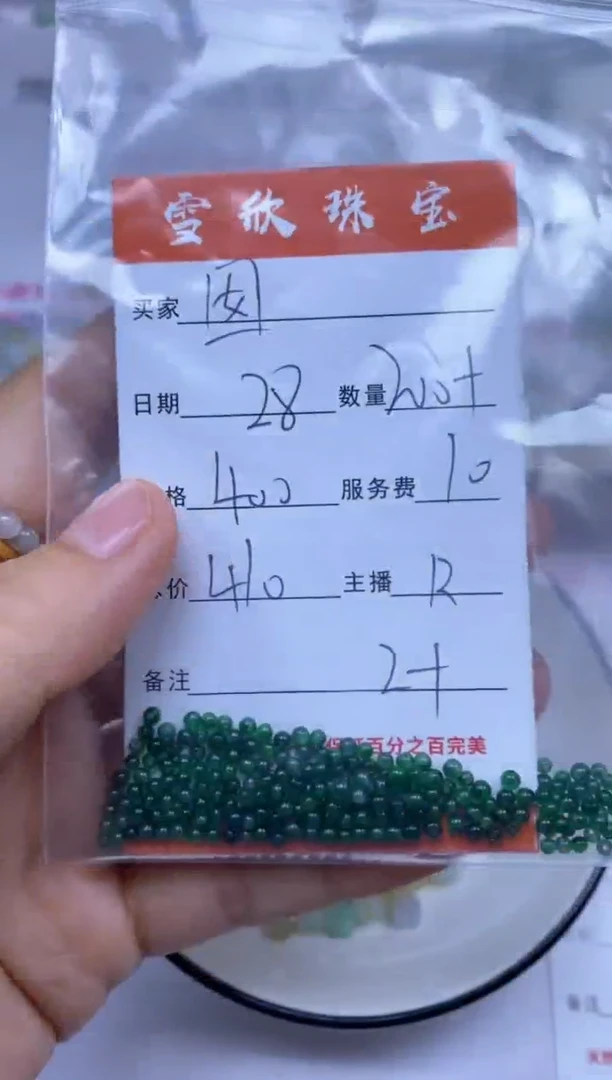 雪欣珠宝
买家 囡
日期 28 数量 200+
格 400 服务费 10
价 410 主播 R
备注 2+
百分之百完美
备注